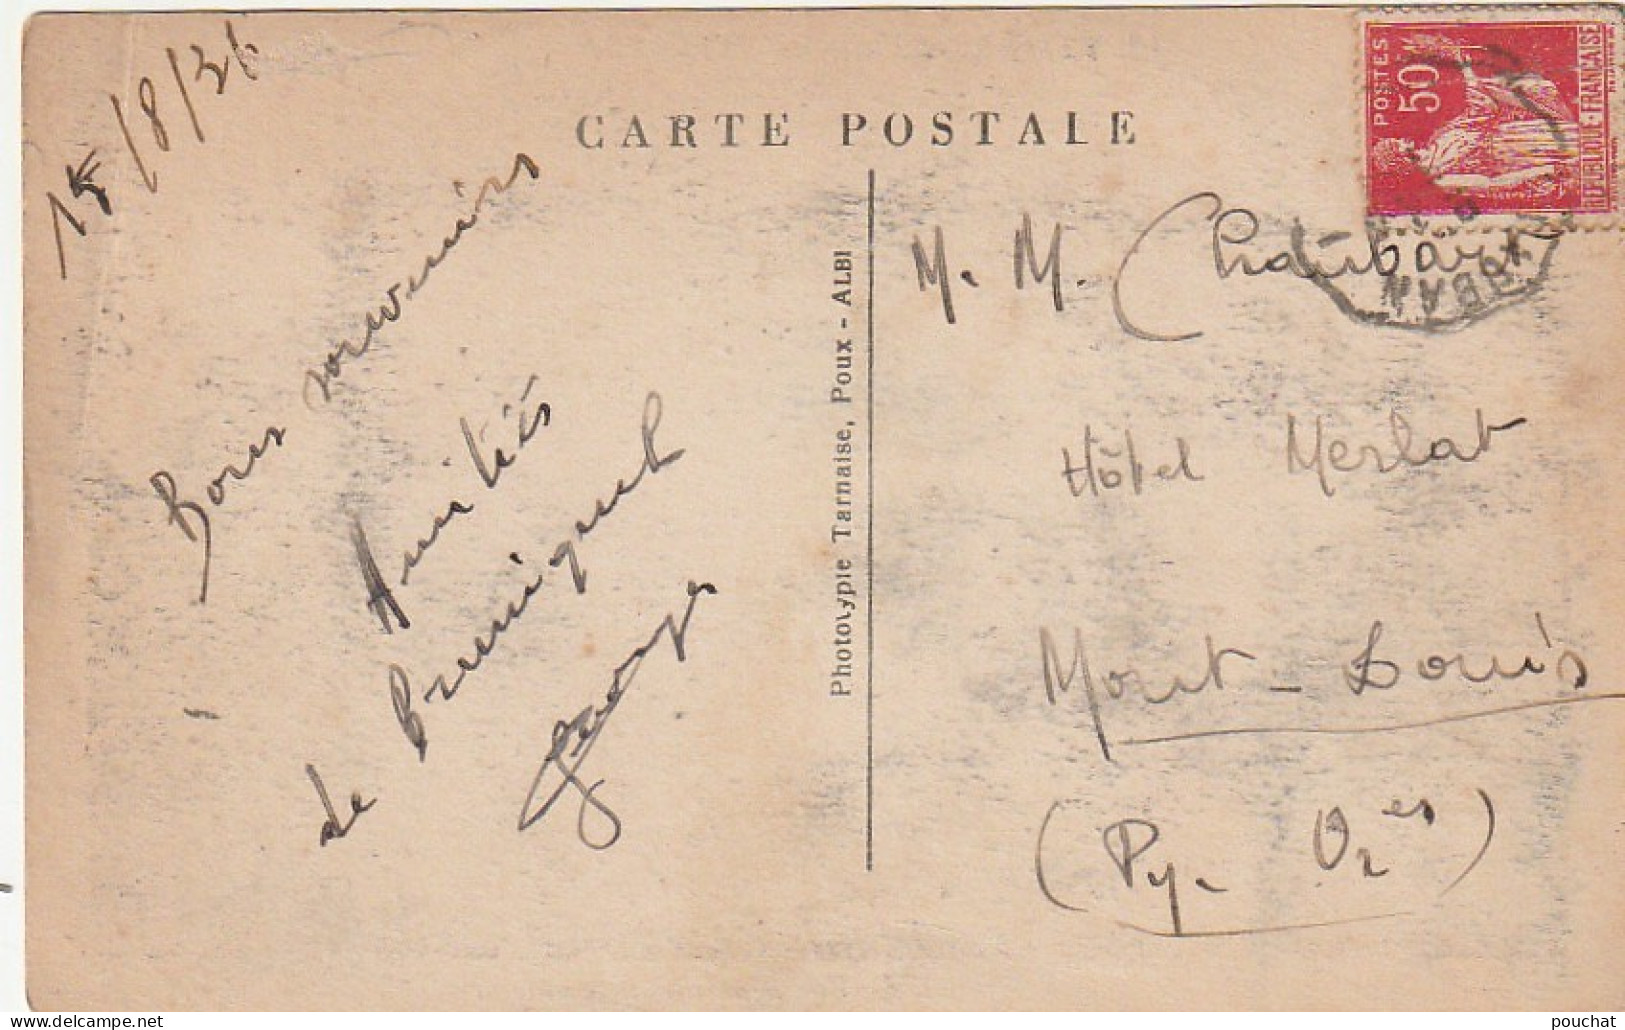 15/8/36
CARTE POSTALE
Bons souvenirs
Amitiés
de Bruniquel
Georges
Phototypie Tarnaise, Poux - ALBI
POSTES
50c
REPUBLIQUE FRANÇAISE
M. M.
Hôtel Merlat
Mont-Louis
(Py. Or es)
www.delcampe.net
pouchat